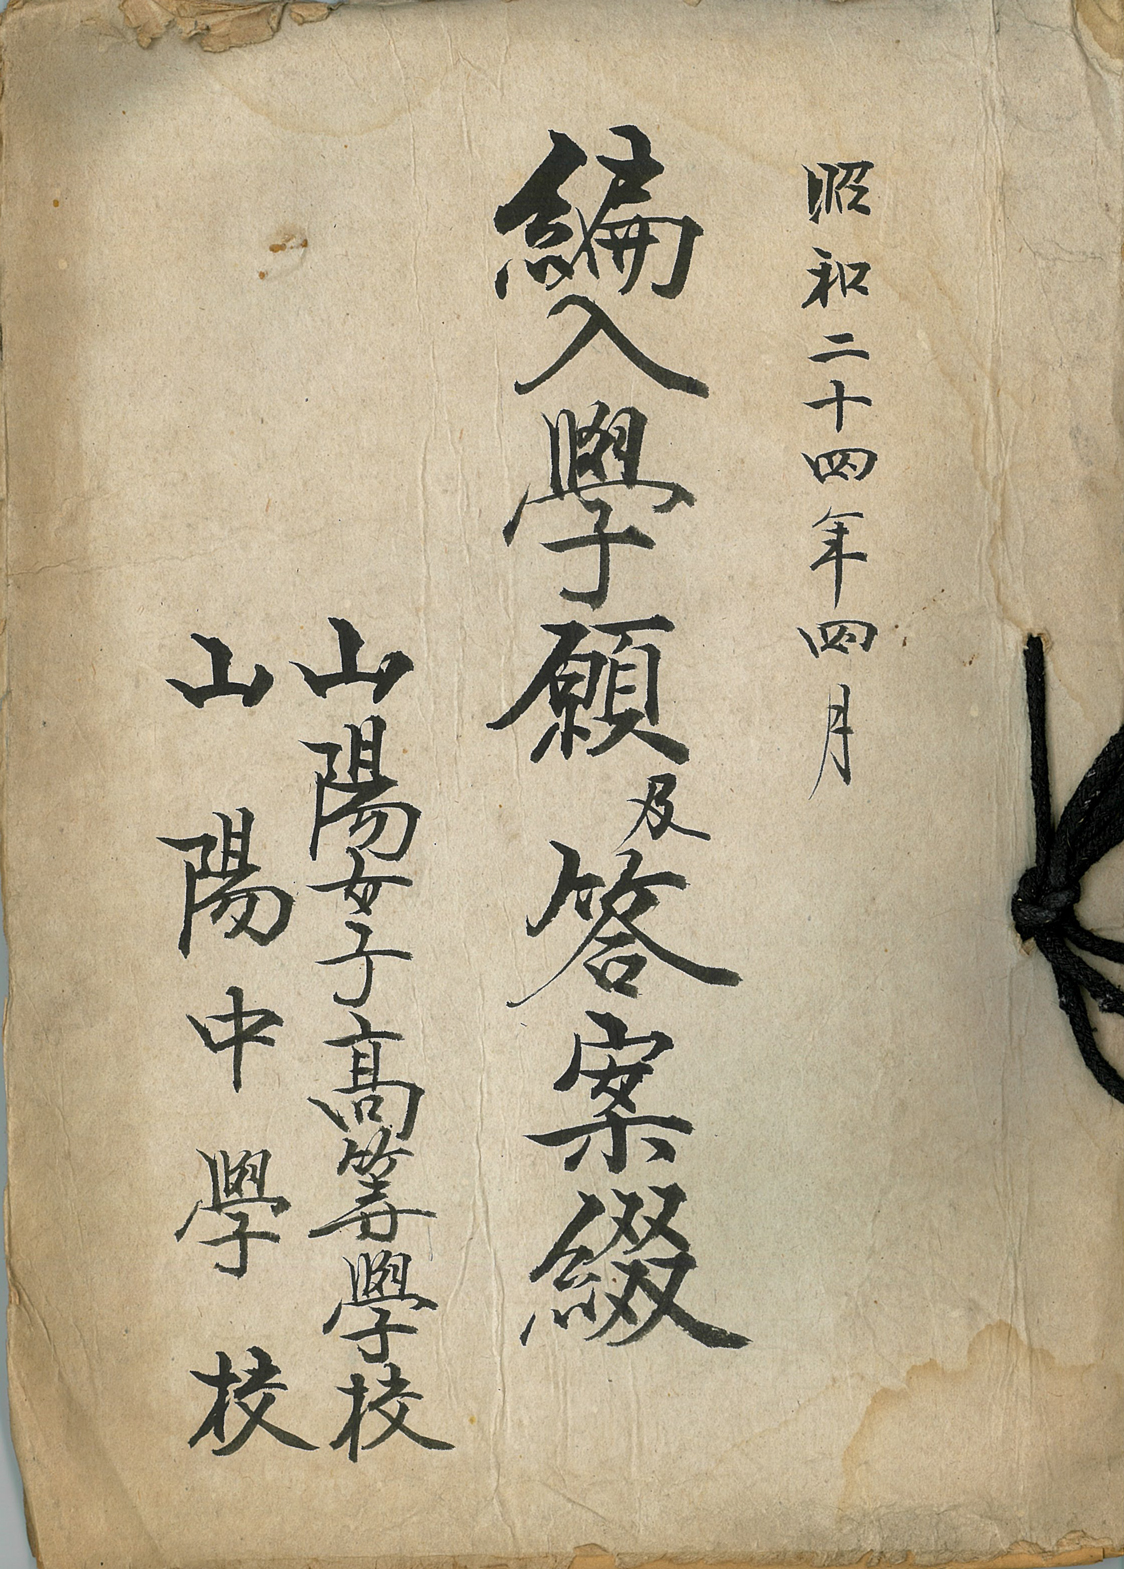 昭和二十四年四月
編入學願及答案綴
山陽女子高等學校
山陽中學校